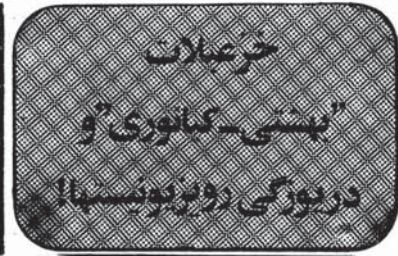 خزعبلات
"بهشتی-کیانوری" و
دریوزگی رویزیونیستها!